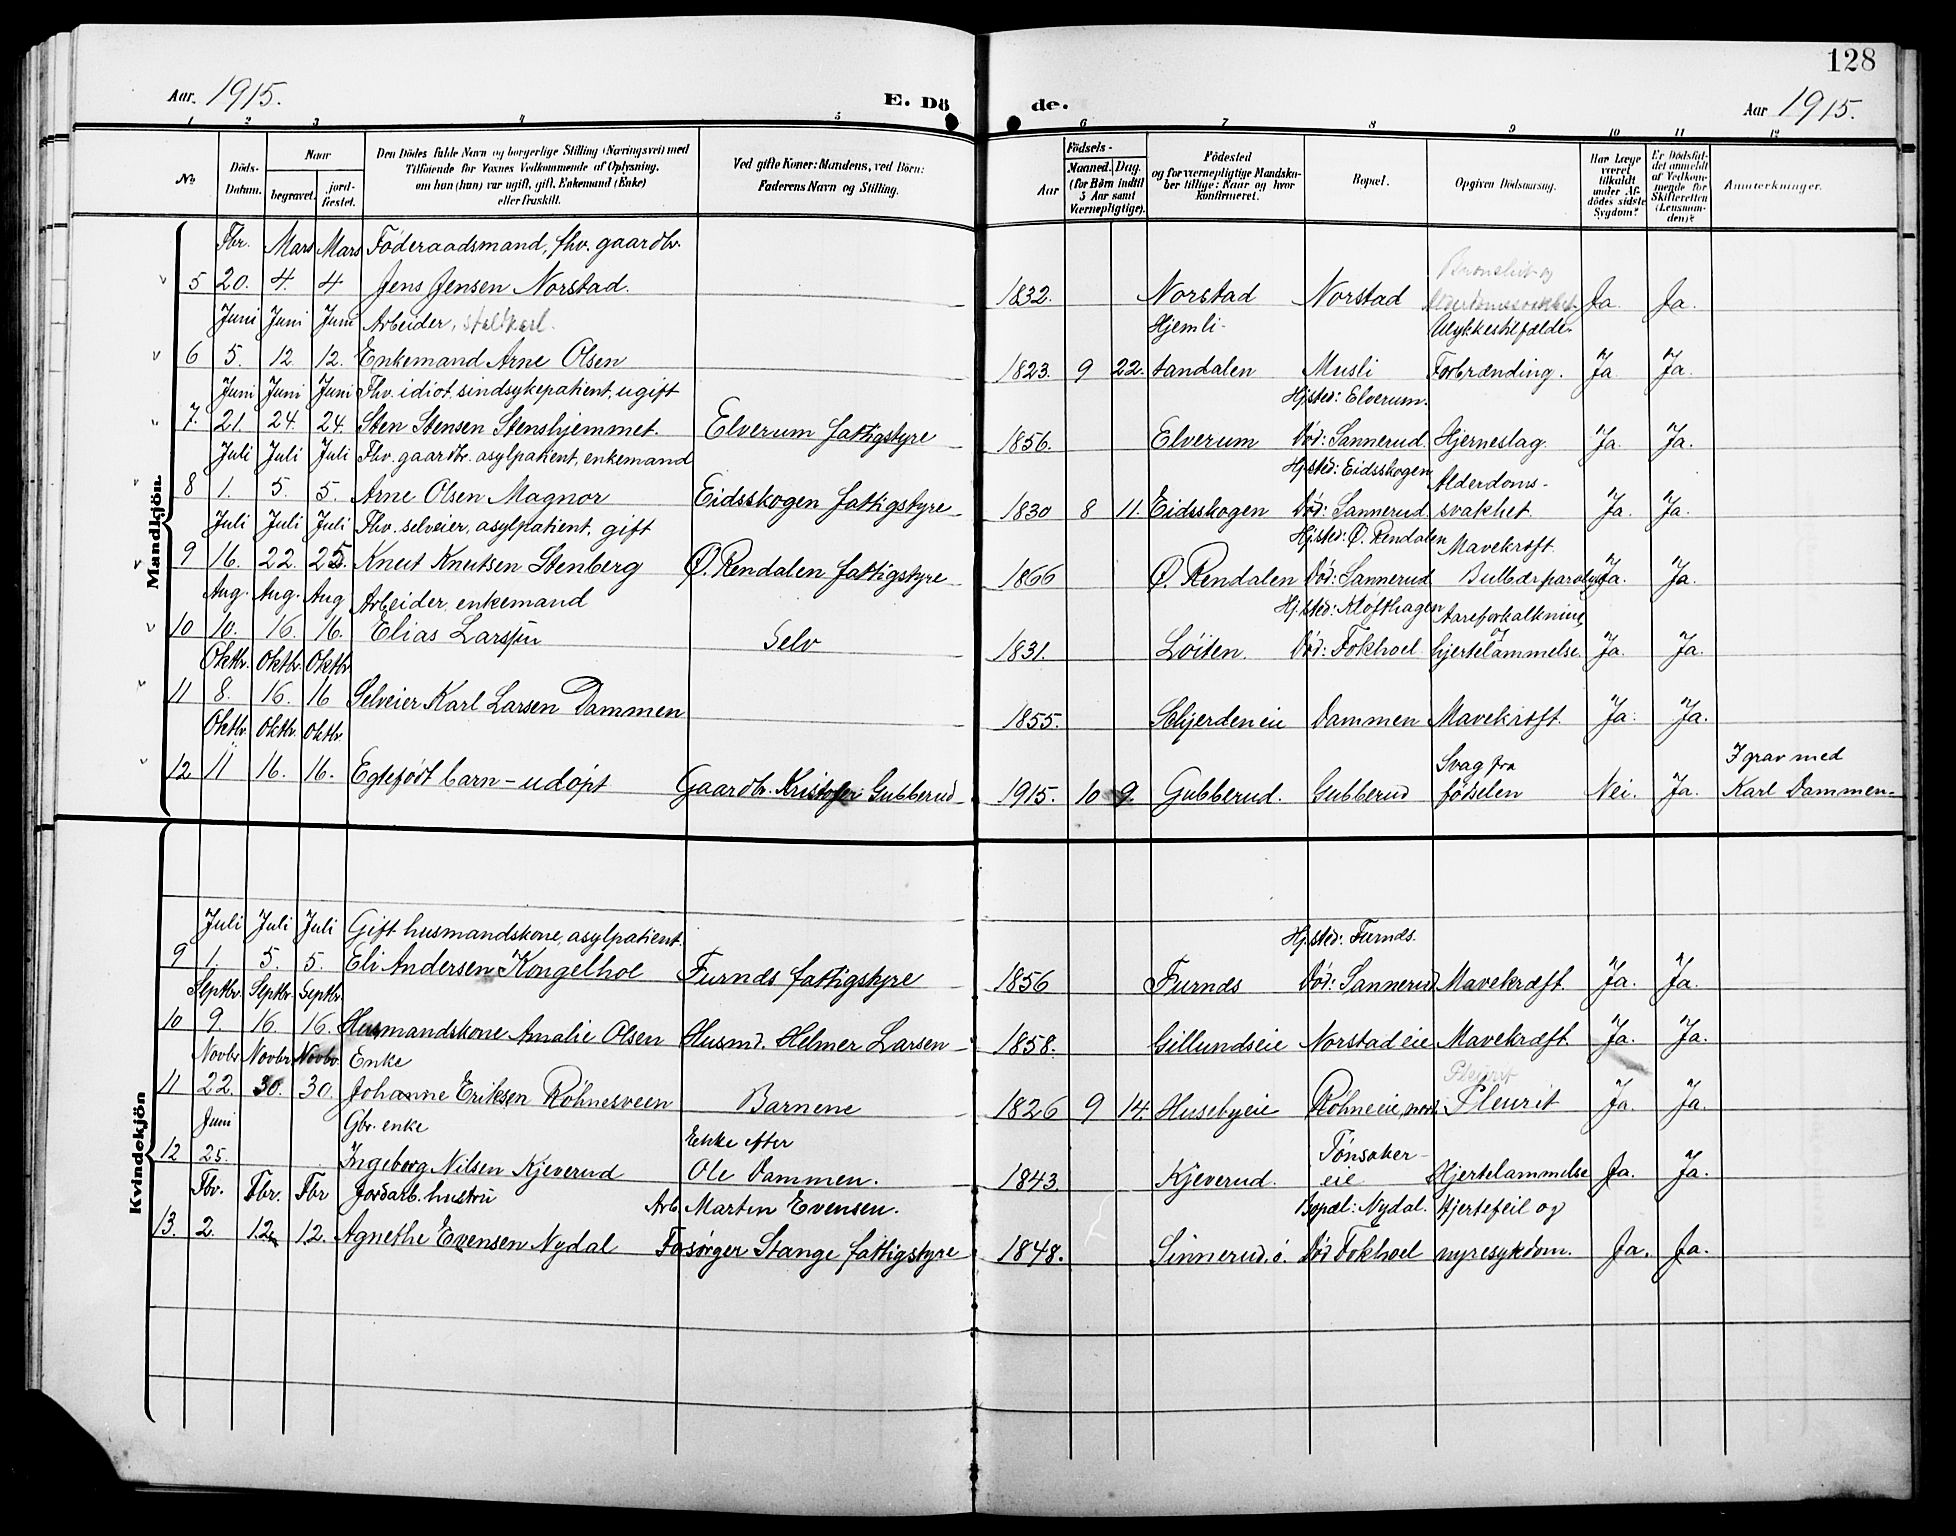 128
Aar. 1915.
E. Dö
de.
Aar 1915.
1 2 3 4 5 6 7 8 9 10 11 12
No
Döds-Datum.
Naar
begravet.
jord-fæstet.
Den Dödes fulde Navn og borgerlige Stilling (Næringsvei) med Tilföiende for Voxnes Vedkommende af Oplysning, om han (hun) var ugift, gift, Enkemand (Enke) eller fraskilt.
Ved gifte Koner: Mandens, ved Börn: Faderens Navn og Stilling.
Födsels-
Aar
Maaned. Dag.
(for Börn indtil 5 Aar samt Værnepligtige).
Födested og for værnepligtige Mandskaber tillige: Naar og hvor konfirmeret.
Bopæl.
Opgiven Dödsaarsag.
Har Læge været tilkaldt under Afdödes sidste Sygdom?
Er Dödsfaldet anmeldt af Vedkommende for Skifteretten (Lensmanden)?
Anmerkninger.
Mandkjön.
Fbr. Mars Mars Föderaadsmand, fhv. gaardbr.
5 20. 4. 4 Jens Jensen Norstad. 1832. Norstad Norstad Ja. Ja.
Juni Juni Juni Arbeider, Hjemli- Ulykkestilfælde
6 5. 12 12. Enkemand Arne Olsen 1823. 9 22. tandalen Musli Forbrænding. Ja Ja.
Juni Juni Juni Fhv. idiot, sindsykepatient, ugift Hjsted: Elverum.
7. 21. 24. 24. Sten Stensen Stenshjemmet. Elverum fattigstyre 1856. Elverum Död: Sannerud Hjerneslag. Ja. Ja.
Juli Juli Juli Fhv. gaardbr. asylpatient, enkemand Hjsted: Eidsskogen Alderdoms-
8 1. 5. 5. Arne Olsen Magnor Eidsskogen fattigstyre 1830 8 11. Eidsskogen Död: Sannerud svakhet. Ja. Ja.
Juli Juli Juli Fhv. selveier, asylpatient, gift Hjsted: Ø. Rendalen Mavekræft.
9 16. 22. 25. Knut Knutsen Stenberg Ø. Rendalen fattigstyre 1866 Ø. Rendalen Död: Sannerud Bulbærparalyse Ja. Ja.
Aug. Aug. Aug Arbeider, enkemand Hj.sted: Kløfthagen Aareforkalkning
10 10. 16. 16. Elias Larsen Selv 1831. Løiten. Död: Fokhoel og hjertelammelse. Ja. Ja.
Oktbr. Oktbr. Oktbr.
11 8. 16. 16 Selveier Karl Larsen Dammen 1855. Skjerdeneie Dammen Mavekræft. Ja. Ja.
Oktbr. Oktbr. Oktbr. Svag fra I grav med
12 11 16. 16. Egtefödt barn - udöpt Gaardbr. Kristofer Gubberud 1915. 10 9. Gubberud. Gubberud fødselen Nei. Ja. Karl Dammen
Kvindekjön
Juli Juli Juli Gift husmandskone, asylpatient. Hj.sted: Furnes.
9 1. 5. 5. Eli Andersen Kongelhoe Furnes fattigstyre 1856 Furnes Död: Sannerud Mavekræft Ja. Ja.
Septbr. Septbr. Septbr.
10 9. 16. 16. Husmandskone Amalie Olsen Husmd. Helmer Larsen 1858. Gillundseie Norstad eie Mavekræft. Ja. Ja.
Novbr. Novbr. Novbr. Enke Pleurit
11 22. 30. 30. Johanne Eriksen Röhnesveen Barnene 1826 9 14. Husebyeie Röhneeie, nord. Pleurit Ja. Ja.
Juni Gbr. enke Enke efter Tønsaker-
12 25. Ingeborg Nilsen Kjeverud Ole Dammen. 1843. Kjeverud. eie Hjertelammelse Ja. Ja.
Fbr. Fbr. Fbr Jordarb. hustru Arb. Martin Evensen. Bopæl: Nydal. Hjertefeil og
13. 2. 12. 12. Agnethe Evensen Nydal Forsørger Stange fattigstyre 1848. Sinnerud, ö. Död Fokhoel nyresykdom. Ja. Ja.